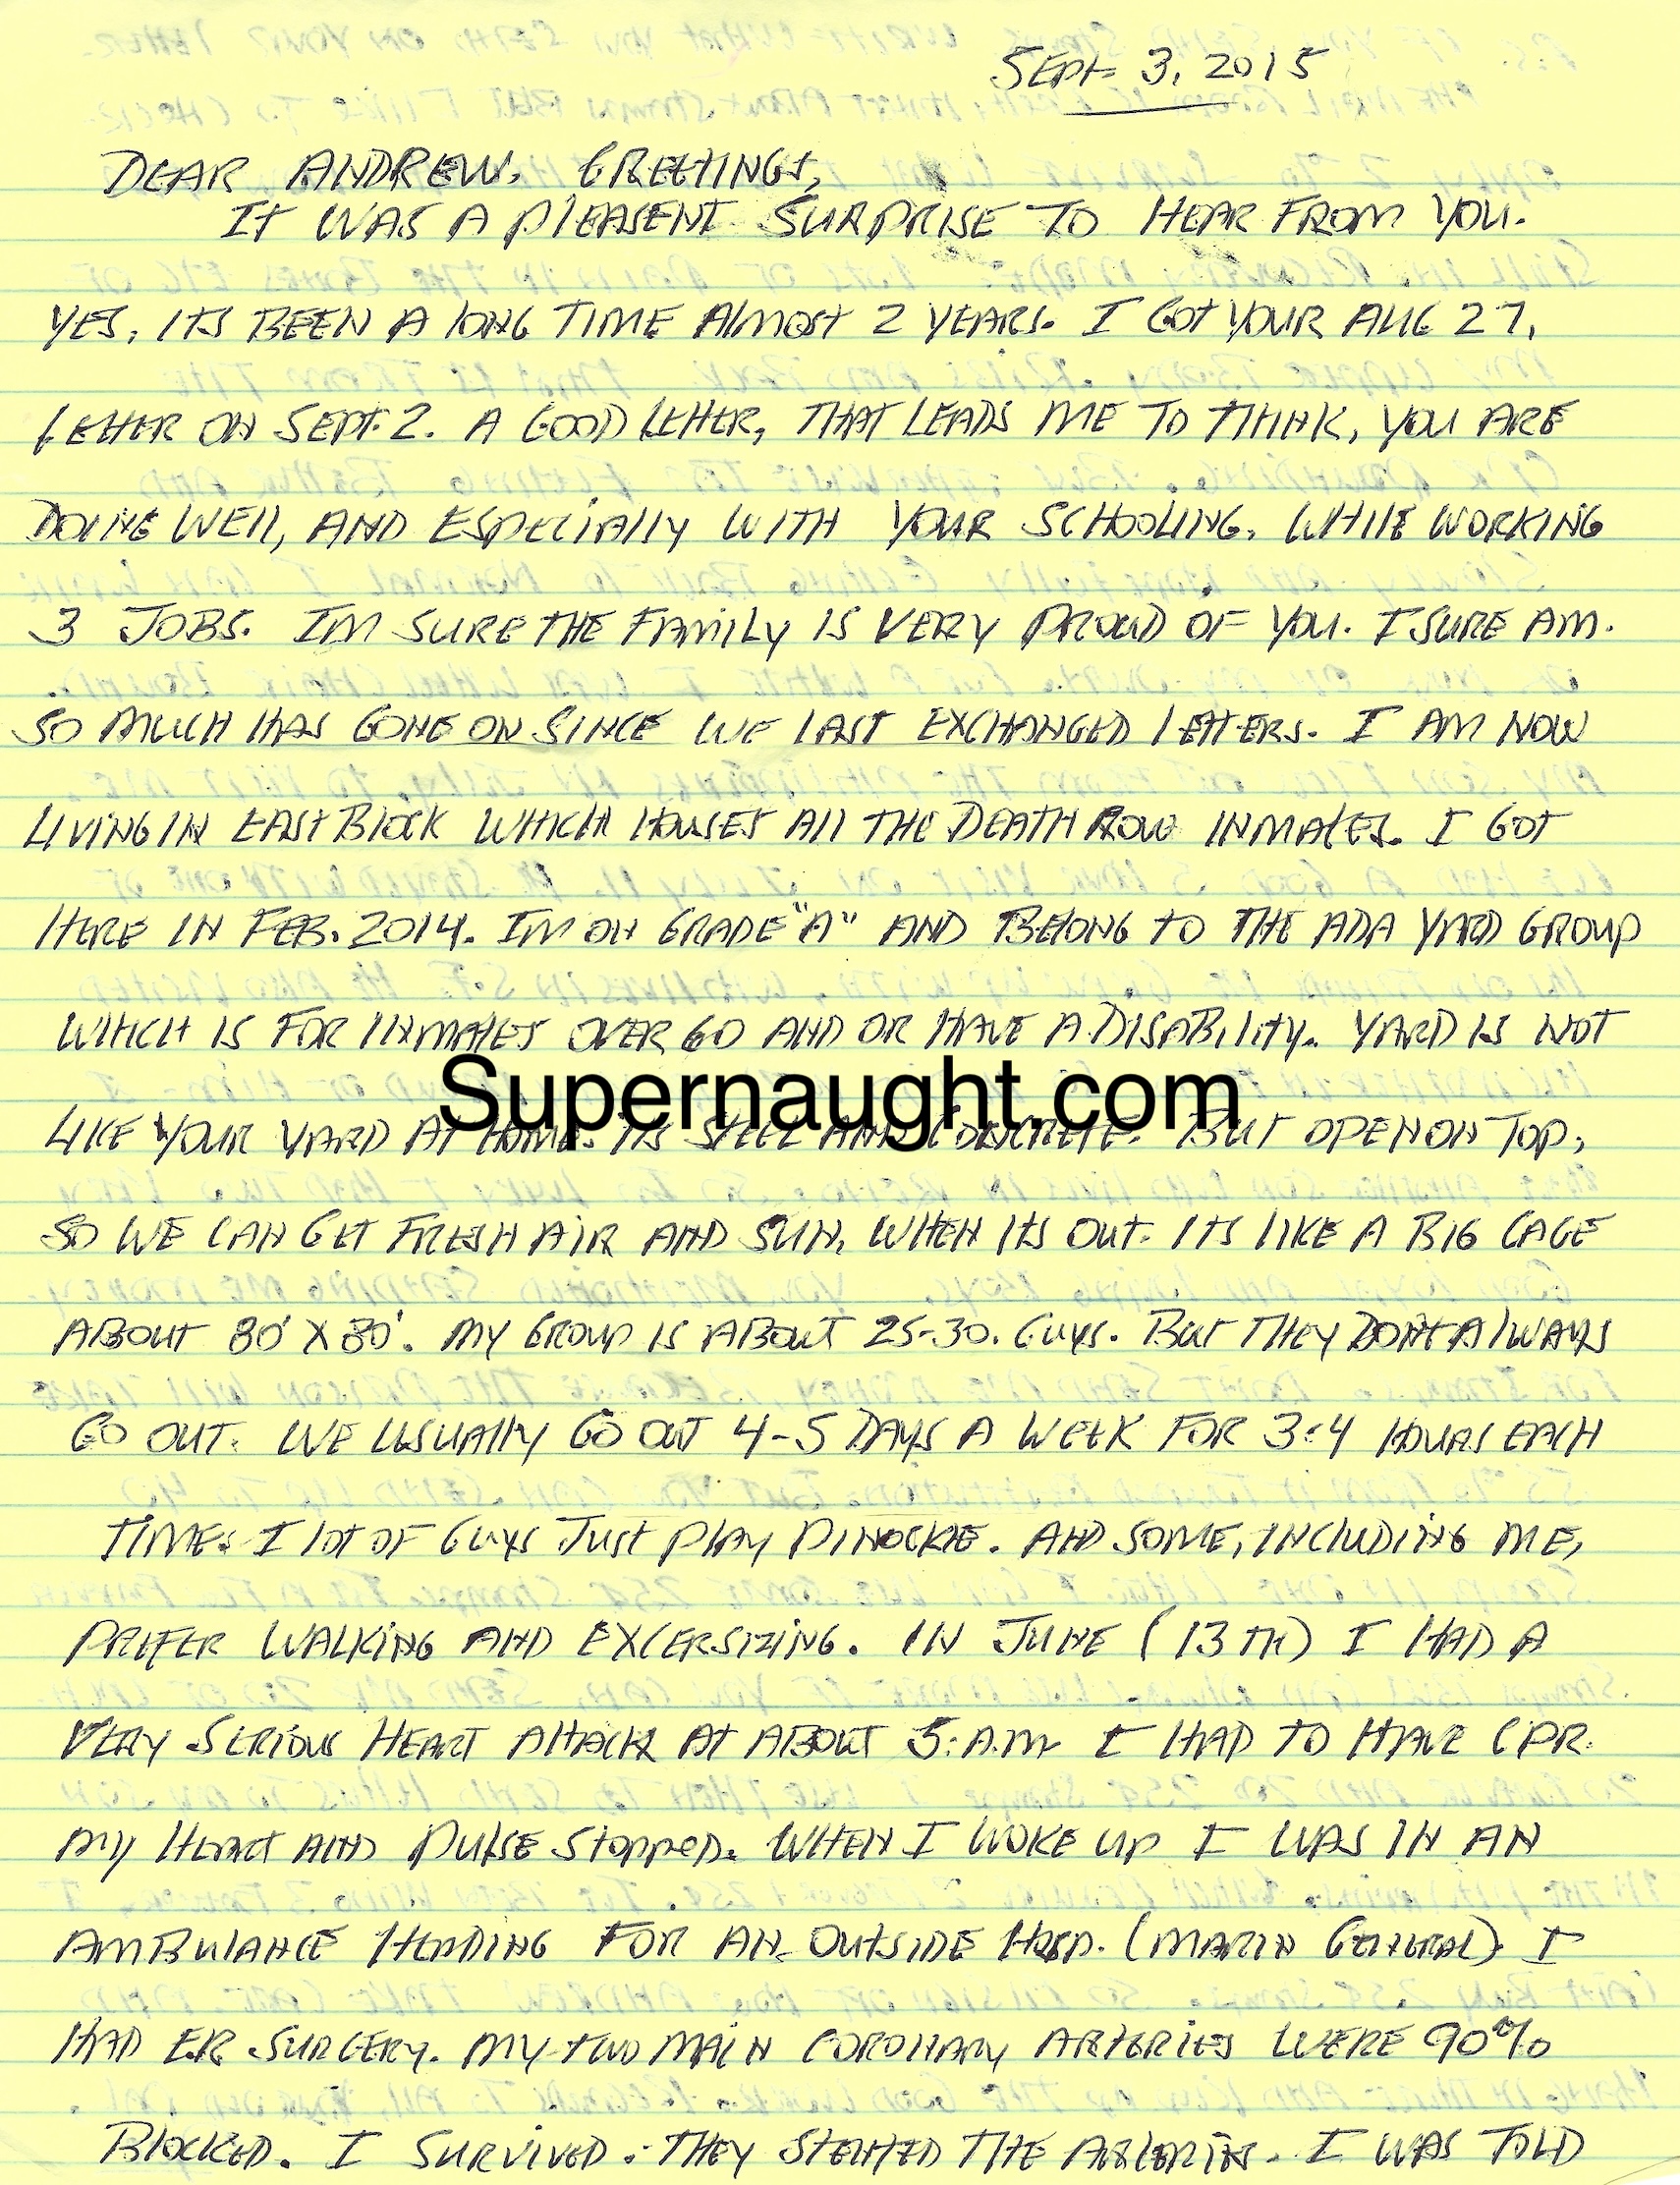 SEPT 3, 2015
DEAR ANDREW, GREETINGS,
IT WAS A PLEASENT SURPRISE TO HEAR FROM YOU.
YES, ITS BEEN A LONG TIME ALMOST 2 YEARS. I GOT YOUR AUG 27,
LETTER ON SEPT. 2. A GOOD LETTER, THAT LEADS ME TO THINK, YOU ARE
DOING WELL, AND ESPECIALLY WITH YOUR SCHOOLING, WHILE WORKING
3 JOBS. IM SURE THE FAMILY IS VERY PROUD OF YOU. I SURE AM.
SO MUCH HAS GONE ON SINCE WE LAST EXCHANGED LETTERS. I AM NOW
LIVING IN EAST BLOCK WHICH HOUSES ALL THE DEATH ROW INMATES. I GOT
HERE IN FEB. 2014. IM ON GRADE "A" AND BELONG TO THE ADA YARD GROUP
WHICH IS FOR INMATES OVER 60 AND OR HAVE A DISABILITY. YARD IS NOT
Supernaught.com
LIKE YOUR YARD AT HOME. ITS STEEL AND CONCRETE. BUT OPEN ON TOP,
SO WE CAN GET FRESH AIR AND SUN, WHEN ITS OUT. ITS LIKE A BIG CAGE
ABOUT 80' X 80'. MY GROUP IS ABOUT 25-30. GUYS. BUT THEY DONT ALWAYS
GO OUT. WE USUALLY GO OUT 4-5 DAYS A WEEK FOR 3-4 HOURS EACH
TIME. I LOT OF GUYS JUST PLAY PINOCKLE. AND SOME, INCLUDING ME,
PREFER WALKING AND EXCERSIZING. IN JUNE (13TH) I HAD A
VERY SERIOUS HEART ATTACK AT ABOUT 5:A.M. I HAD TO HAVE CPR.
MY HEART AND PULSE STOPPED. WHEN I WOKE UP I WAS IN AN
AMBULANCE HEADING FOR AN OUTSIDE HOSP. (MARIN GENERAL). I
HAD E.R. SURGERY. MY TWO MAIN CORONARY ARTERIES WERE 90%
BLOCKED. I SURVIVED. THEY STENTED THE ARTERIES. I WAS TOLD